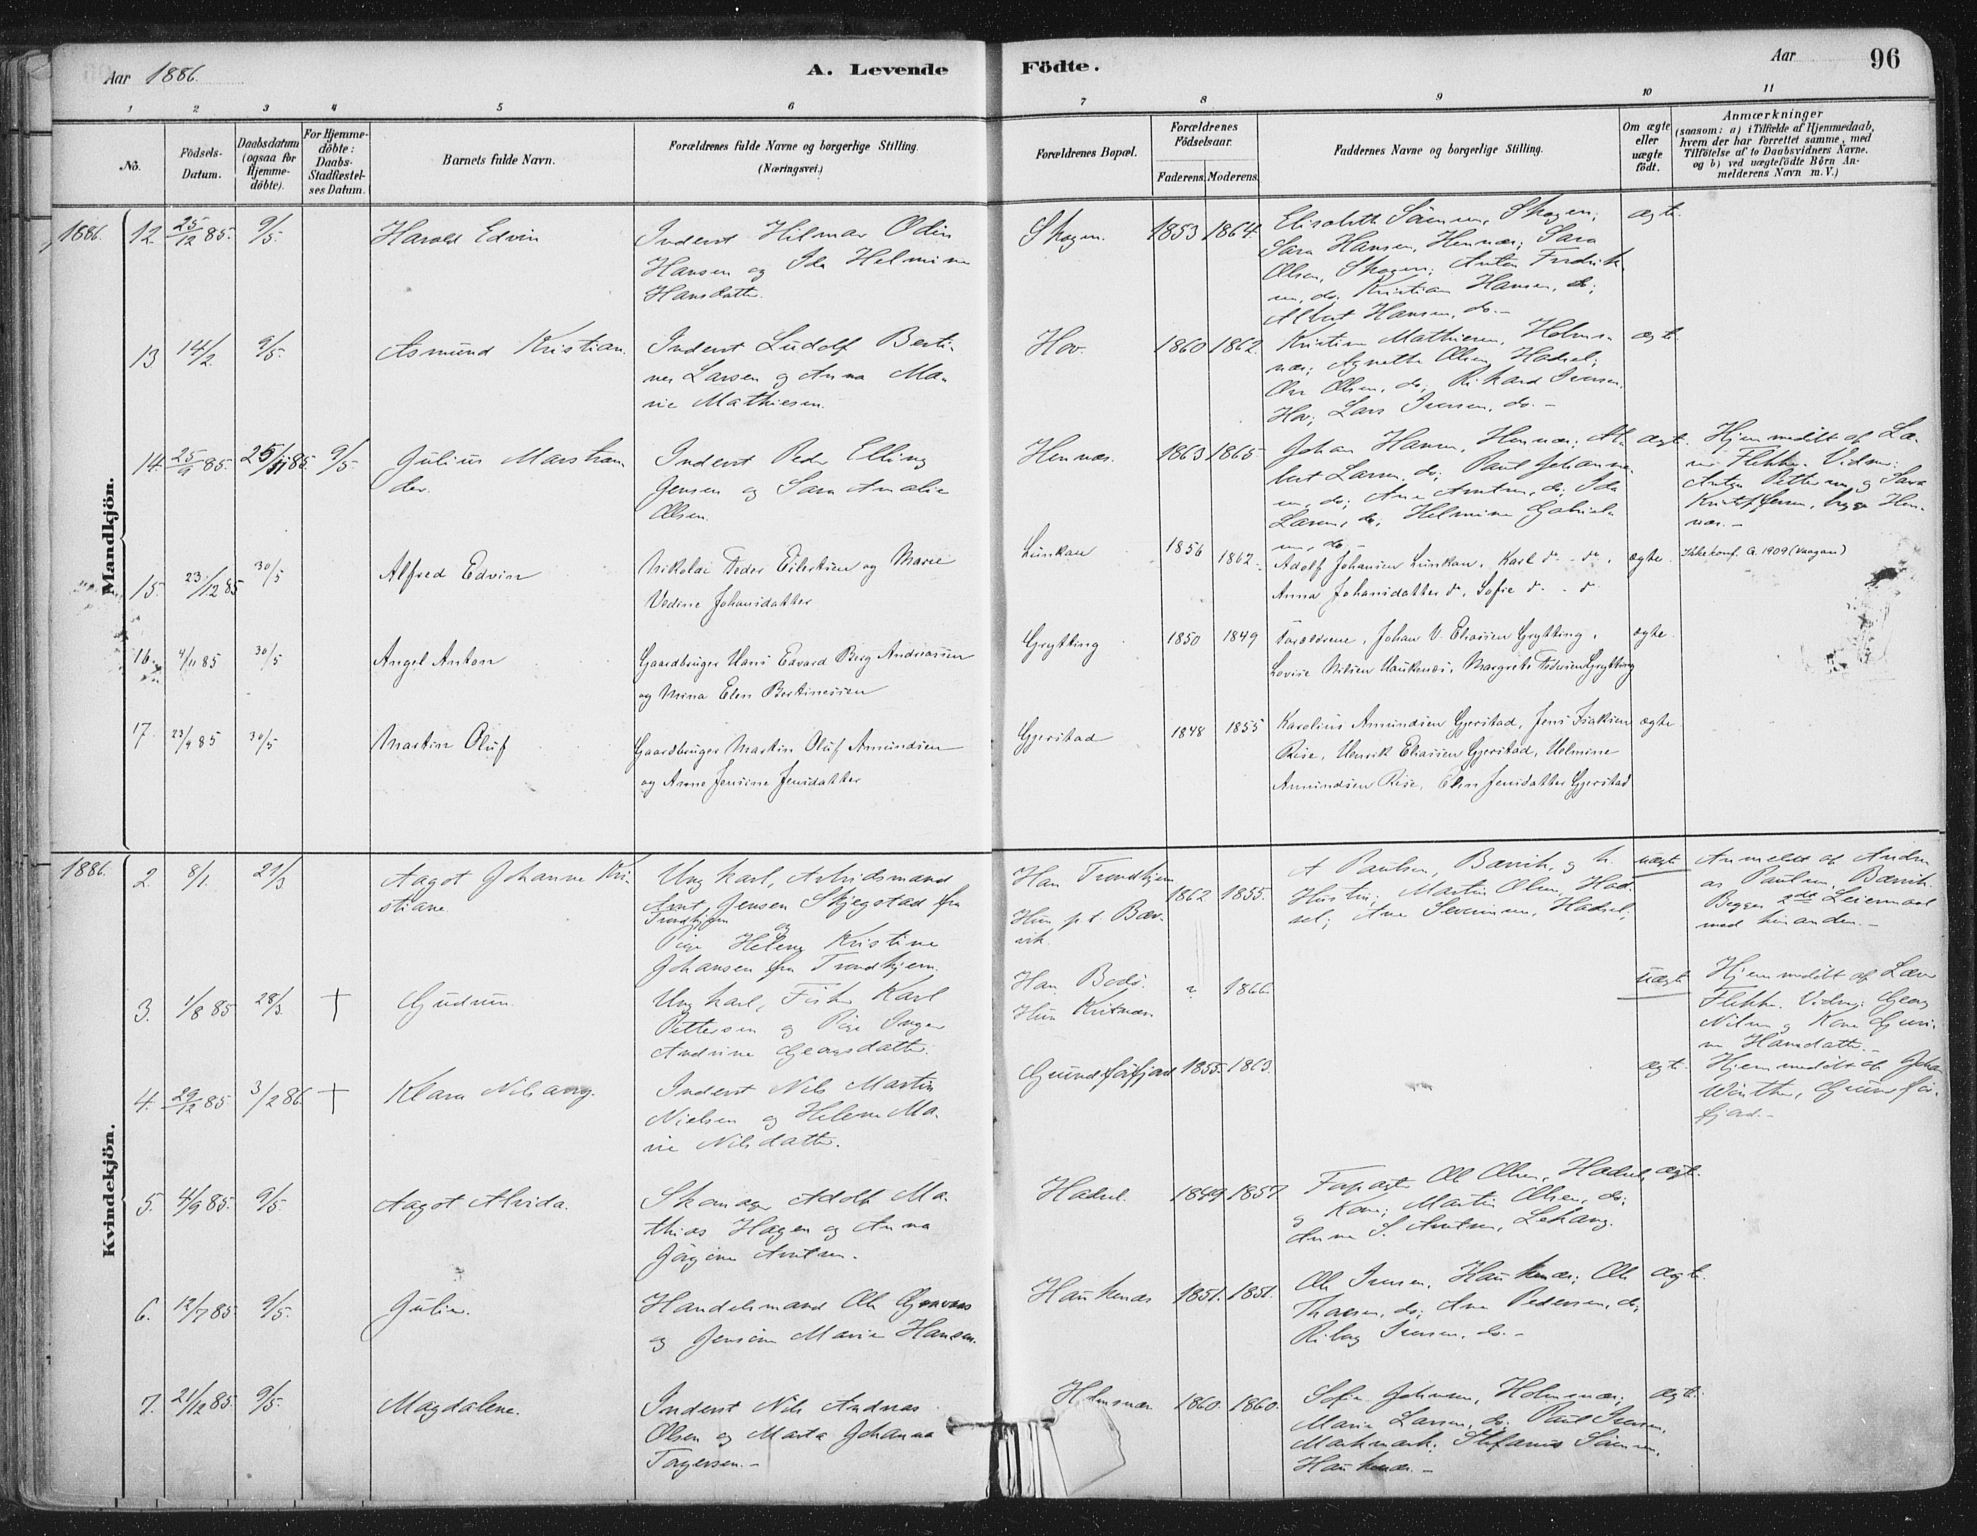 Aar 1886.
A. Levende
Födte.
Aar
96
1 2 3 4 5 6 7 8 9 10 11
No.
Födsels-
Datum.
Daabsdatum
(ogsaa for
Hjemme-
döbte).
For Hjemme-
döbte:
Daabs-
Stadfæstel-
ses Datum.
Barnets fulde Navn.
Forældrenes fulde Navne og borgerlige Stilling.
(Næringsvei.)
Forældrenes Bopæl.
Forældrenes
Födselsaar.
Faderens. Moderens.
Faddernes Navne og borgerlige Stilling.
Om ægte
eller
uægte
födt.
Anmærkninger
(saasom: a) i Tilfælde af Hjemmedaab,
hvem der har forrettet samme, med
Tilföielse af to Daabsvidners Navne.
og b) ved uægtefödte Börn An-
melderens Navn m.V.)
Mandkjön.
1886. 12. 25/12 85. 9/5. Harald Edvin
Inderst Hilmar Odin
Hansen og Ida Helmine
Hansdatter.
Skogen. 1853 1864
Elisabeth Sörensen, Skogen;
Sara Hansen, Hennæs; Sara
Olsen, Skogen; Anton Fredrik
sen, do; Kristian Hansen, do;
Albert Hansen, do. -
ægte.
13 14/2. 9/5. Asmund Kristian.
Inderst Ludolf Berti-
nus Larsen og Anna Ma-
rie Mathiesen.
Hov. 1860 1862.
Kristine Mathiesen, Holms-
næs; Agnethe Olsen, Hadsel;
Ole Olsen, do, Rikard Iversen,
Hov; Lars Iversen, do. -
ægte.
14. 25/9 85. 25/11 85. 9/5. Julius Marstran-
der.
Inderst Peder Elling
Jensen og Sara Amalie
Olsen.
Hennæs. 1863 1865
Johan Hansen, Hennæs; Al-
bert Larsen, do; Paul Johanne-
sen, do; Ane Arntsen, do; Ida
Larsen, do, Helmine Gabriel-
sen, do. -
ægte.
Hjemmedöbt af Læ-
rer Flekke. Vidner:
Anton Pettersen og Sara
Kristoffersen, begge Hen-
næs. -
15. 23/12 85 30/5 Alfred Edvin
Nikolai Peder Eilertsen og Marie
Vedine Johansdatter
Lunkan 1856 1862.
Adolf Johansen Lunkan, Karl do - do,
Anna Johansdatter do, Sofie do - do
ægte.
Ikke konf. A. 1909 (Vaagan)
16. 4/11 85 30/5 Angel Anton
Gaardbruger Hans Edvard Berg Andreassen
og Mina Elen Bertinessen
Grytting 1850 1849
Forældrene, Johan V. Eliassen Grytting,
Lovise Nilsen Haukenæs, Margrete Pedersen Grytting
ægte.
17. 23/9 85 30/5 Martin Oluf
Gaardbruger Martin Oluf Amundsen
og Anne Jensine Jensdatter
Gjerstad 1848 1855
Karolius Amundsen Gjerstad, Jens Isaksen
Rise, Henrik Eliassen Gjerstad, Helmine
Amundsen Rise, Elen Jensdatter Gjerstad
ægte.
Kvindekjön.
1886. 2. 8/1. 21/3 Aagot Johanne Kri-
stiane.
Ungkarl, Arbeidsmand
Arnt Jensen Skjegstad fra
Trondhjem og
Pige Helena Kristine
Johansen fra Trondhjem.
Han Trondhjem
Hun p.t. Bær-
vik.
1862 1855.
A Paulsen, Bærvik, og h.
Hustru; Martin Olsen, Had-
sel; Ane Severinsen, Hadsel;
uægte
Anmeldt af Andre-
as Paulsen, Bærvik.
Begges 2det Leiermaal
med hinanden. -
3. 1/8 85. 28/3. † Gudrun.
Ungkarl, Fisker Karl
Pettersen og Pige Inger
Andrine Georgsdatter.
Han Bodö.
Hun Kvitnæs
? 1866
uægte
Hjemmedöbt af Lærer
Flekke. Vidner: Georg
Nilsen og Kone Guri-
ne Hansdatter. -
4. 29/12 85 3/2 86 † Klara Nilsang.
Inderst Nils Martin
Nielsen og Helene Ma-
rie Nilsdatter.
Grundförfjord 1855. 1863.
ægte.
Hjemmedöbt af Johan
Winther, Grundför-
fjord. -
5. 4/9 85. 9/5. Aagot Alvida.
Skomager Adolf Ma-
thias Hagen og Anna
Jörgine Arntsen.
Hadsel. 1849 1857
Forpagter Ole Olsen, Hadsel,
og Kone; Martin Olsen, do;
Anne S. Arntsen, Lekang.
ægte.
6. 12/7 85 9/5. Julie.
Handelsmand Ole Grovas
og Jensine Marie Hansen.
Haukenæs 1851. 1851.
Ole Iversen, Haukenæs; Ole
do; Ane Pedersen, do;
Iversen, do. -
ægte.
7. 21/12 85. 9/5. Magdalene.
Inderst Nils Andreas
Olsen og Marta Johanna
Torgersen. -
Holmsnæs 1860. 1860.
Sofie Johnsen, Holmsnæs;
Marie Larsen, do; Paul Iversen,
Markmark; Stefanus Sörensen,
Haukenæs. -
ægte.